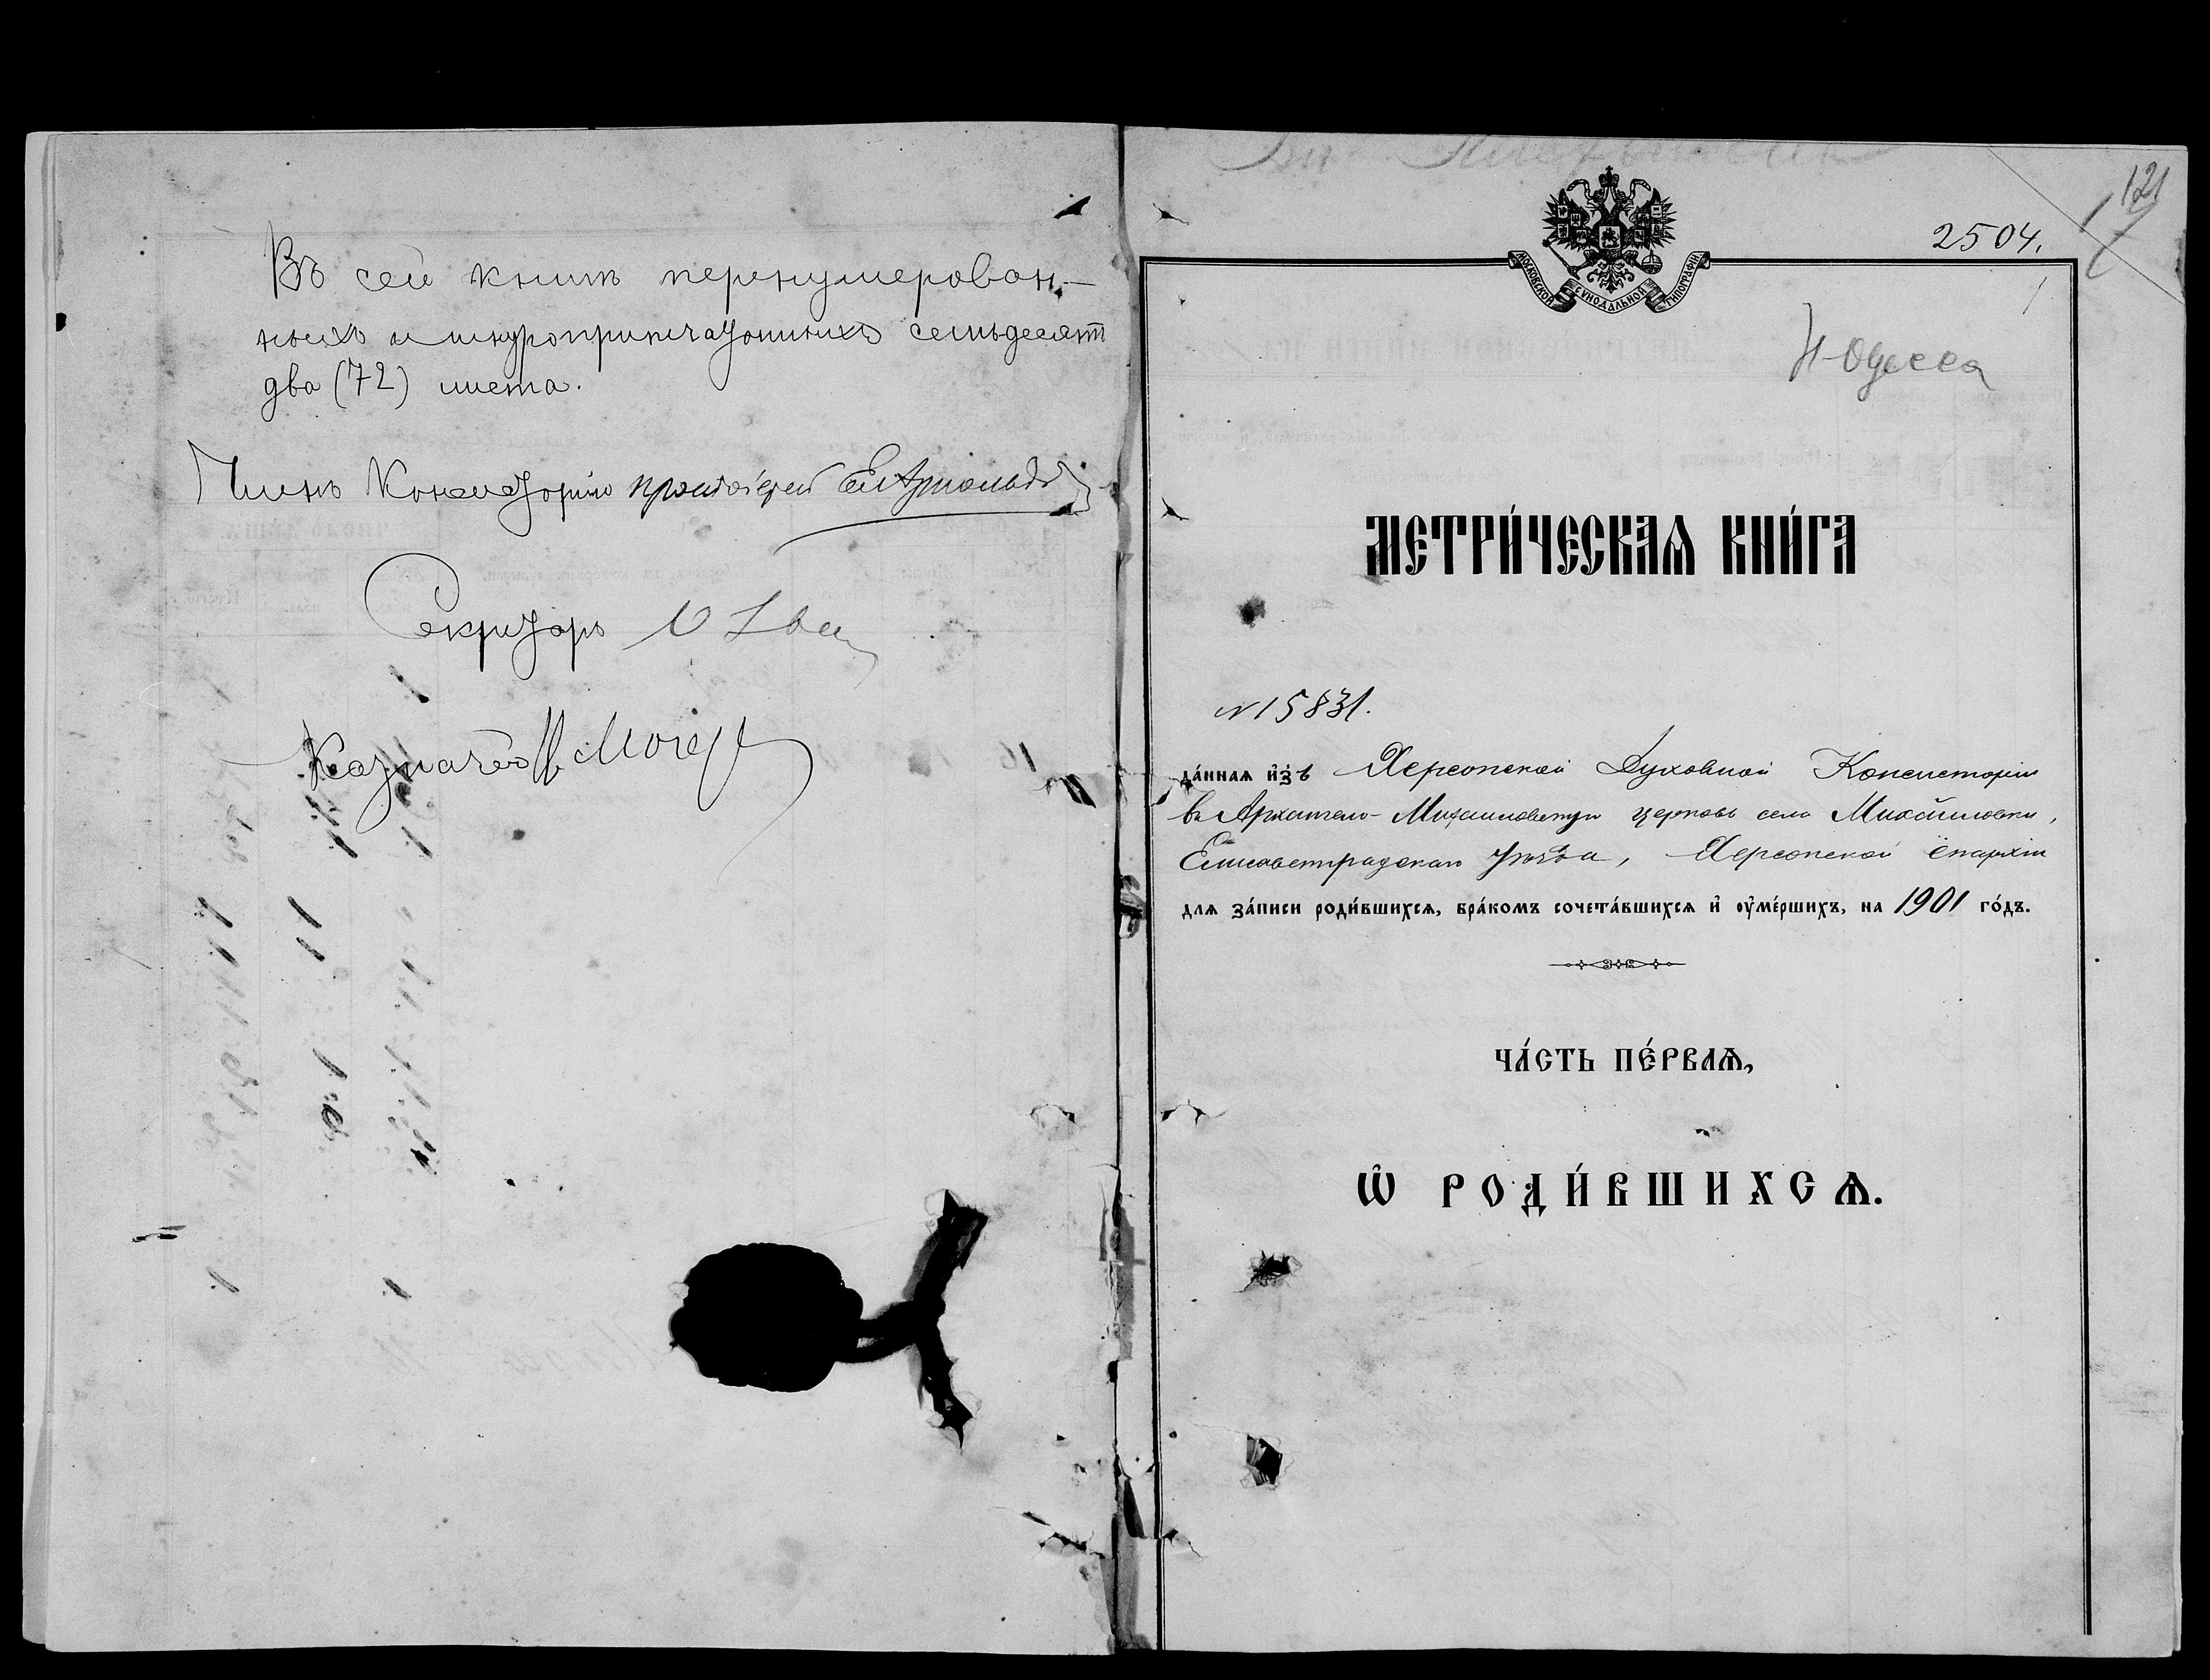 Въ сей книгѣ перенумерован-
ныхъ и шнуроприпечатанныхъ семьдесятъ
два (72) листа.
Членъ Консисторіи протоіерей
Секретарь
Казначей
121
2504.
МОСКОВСКОЙ СѴНОДАЛЬНОЙ ТИПОГРАФІИ
Н-Одесса
МЕТРИ́ЧЕСКАѦ КНИ́ГА
№ 15831.
да́ннаѧ и҆з̾ Херсонской Духовной Консисторіи
въ Архангело-Михайловскую церковь села Михайловки,
Елисаветградскаго уѣзда, Херсонской епархіи
длѧ за́писи роди́вшихсѧ, бра́комъ сочета́вшихсѧ и҆ оу҆ме́ршихъ, на 1901 го́дъ.
ЧА́СТЬ ПЕ́РВАѦ,
Ѡ҆ РОДИ́ВШИХСѦ.